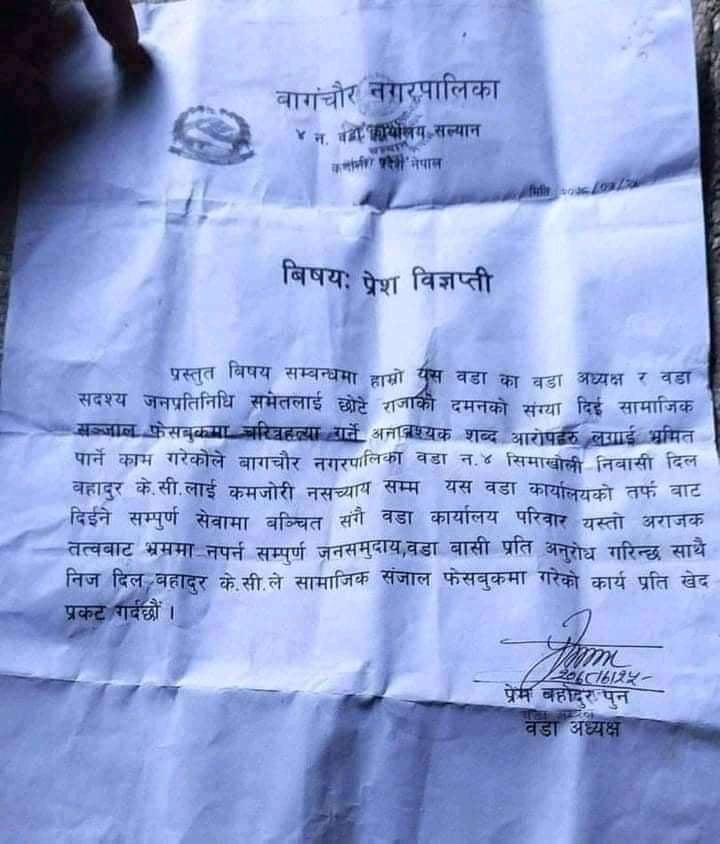 बागंचौर नगरपालिका
४ न. वडा कार्यालय, सल्यान
कर्णाली प्रदेश नेपाल
मिति
बिषय: प्रेश विज्ञप्ती
प्रस्तुत बिषय सम्बन्धमा हाम्रो यस वडा का वडा अध्यक्ष र वडा
सदश्य जनप्रतिनिधि समेतलाई छोटे राजाको दमनको संग्या दिई सामाजिक
सञ्जाल फेसबुकमा चरित्रहत्या गर्ने अनावश्यक शब्द आरोपहरु लगाई भ्रमित
पार्ने काम गरेकोले बागचौर नगरपालिका वडा न.४ सिमाखोली निबासी दिल
वहादुर के.सी.लाई कमजोरी नसच्याय सम्म यस वडा कार्यालयको तर्फ बाट
दिईने सम्पुर्ण सेवामा बञ्चित संगै वडा कार्यालय परिवार यस्तो अराजक
तत्वबाट भ्रममा नपर्न सम्पुर्ण जनसमुदाय,वडा बासी प्रति अनुरोध गरिन्छ साथै
निज दिल बहादुर के.सी.ले सामाजिक संजाल फेसबुकमा गरेको कार्य प्रति खेद
प्रकट गर्दछौं ।
प्रेम बहादुर पुन
वडा अध्यक्ष